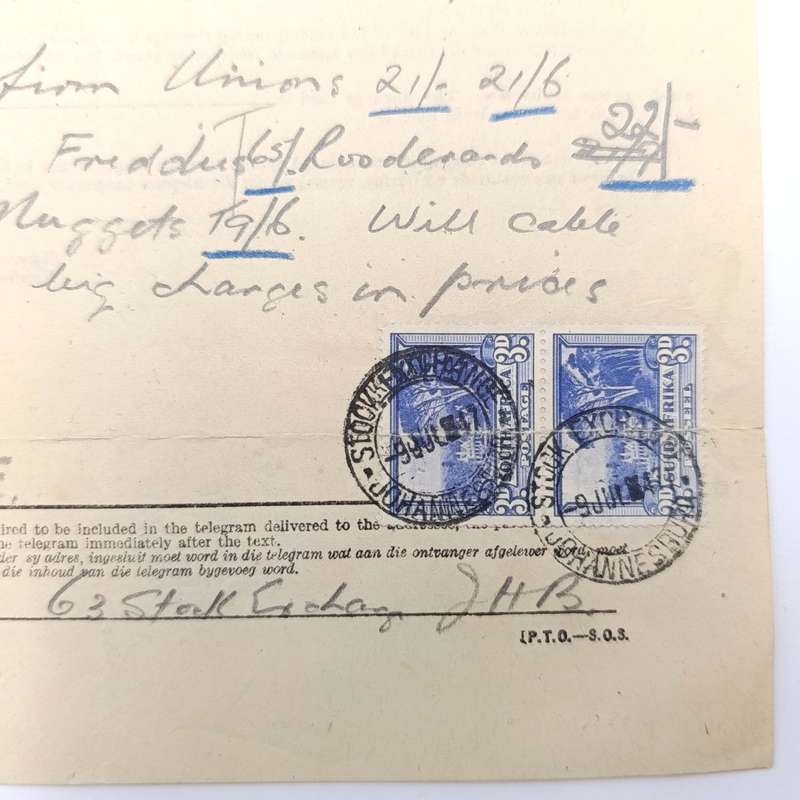 firm Unions 21/- 21/6
Freddies 65/. Rooderands 22/-
Nuggets 19/6. Will cable
big changes in prices
3D. SOUTH AFRICA POSTAGE 3D
3D. SUID-AFRIKA POSSEËL 3D
STOCK EXCHANGE
JOHANNESBURG
STOCK EXCHANGE
-9 JUL 47
JOHANNESBURG
ired to be included in the telegram delivered to the addressee, the
he telegram immediately after the text.
der sy adres, ingesluit moet word in die telegram wat aan die ontvanger afgelewer word, moet
die inhoud van die telegram bygevoeg word.
63 Stock Exchange JHB.
[P.T.O.—S.O.S.